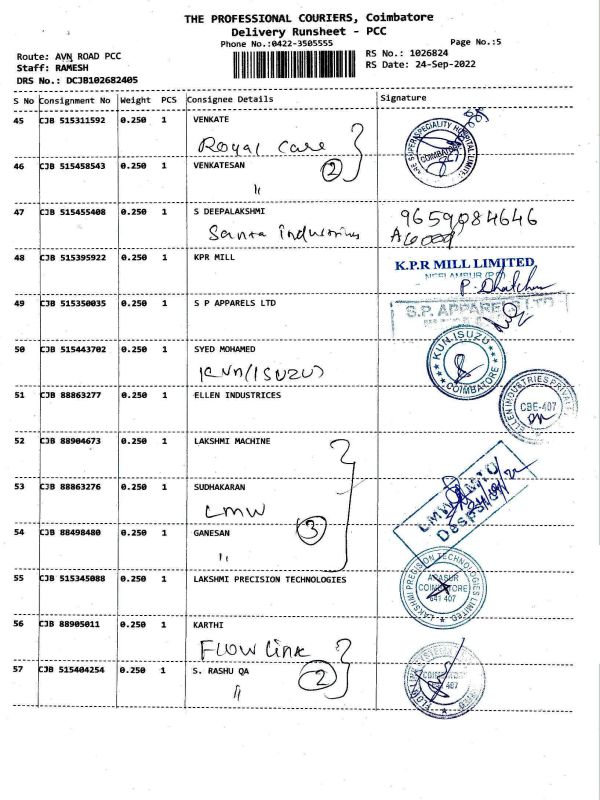 THE PROFESSIONAL COURIERS, Coimbatore
Delivery Runsheet - PCC
Phone No.:0422-3505555
Page No.:5
Route: AVN ROAD PCC
RS No.: 1026824
Staff: RAMESH
RS Date: 24-Sep-2022
DRS No.: DCJB102682405
S No Consignment No Weight PCS Consignee Details Signature
45 CJB 515311592 0.250 1 VENKATE
Royal Care
COIMBATORE
46 CJB 515458543 0.250 1 VENKATESAN
2
"
47 CJB 515455408 0.250 1 S DEEPALAKSHMI
9659084646
48 CJB 515395922 0.250 1 KPR MILL
K.P.R MILL LIMITED
49 CJB 515350035 0.250 1 S P APPARELS LTD
S.P. APPARELS LTD
50 CJB 515443702 0.250 1 SYED MOHAMED
KUN (ISUZU)
KUN ISUZU
COIMBATORE
51 CJB 88863277 0.250 1 ELLEN INDUSTRICES
ELLEN INDUSTRIES PRIVATE
CBE-407
52 CJB 88904673 0.250 1 LAKSHMI MACHINE
53 CJB 88863276 0.250 1 SUDHAKARAN
LMW
3
54 CJB 88498480 0.250 1 GANESAN
"
55 CJB 515345088 0.250 1 LAKSHMI PRECISION TECHNOLOGIES
LAKSHMI PRECISION TECHNOLOGIES LIMITED
COIMBATORE
641 407
56 CJB 88905011 0.250 1 KARTHI
FLOW LINK
57 CJB 515404254 0.250 1 S. RASHU QA
2
"